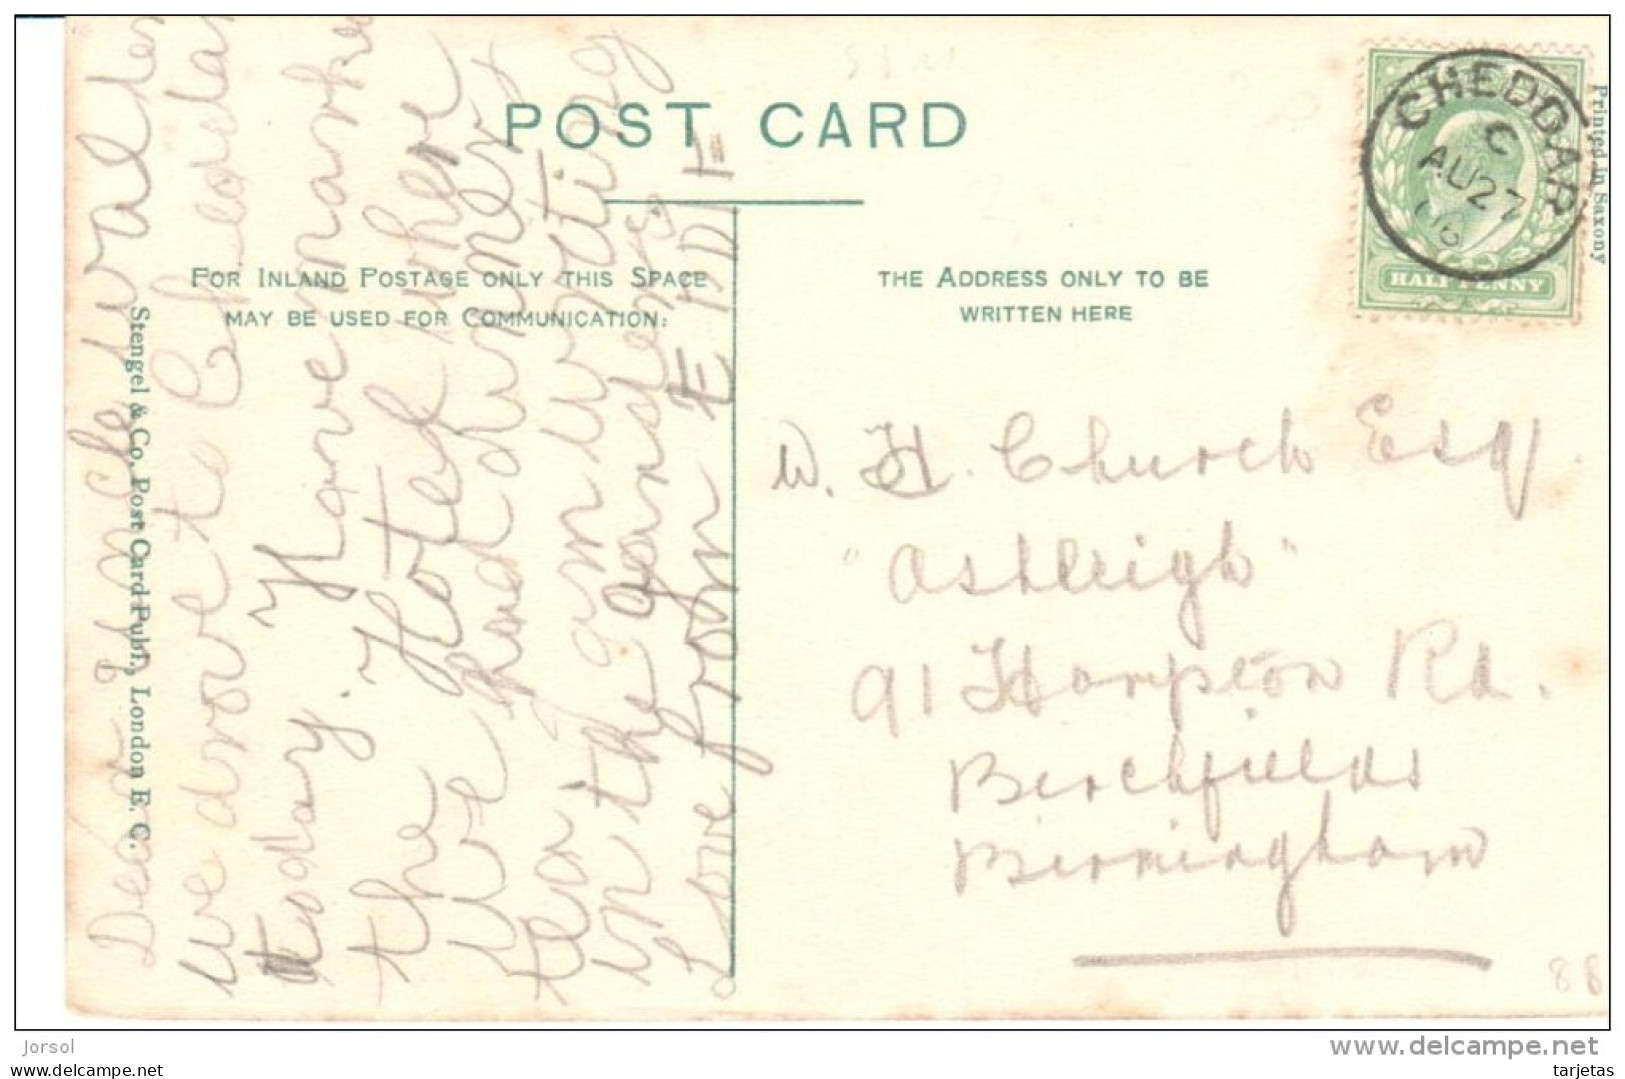 POST CARD
FOR INLAND POSTAGE ONLY THIS SPACE
MAY BE USED FOR COMMUNICATION:
THE ADDRESS ONLY TO BE
WRITTEN HERE
Stengel & Co. Post Card Publ., London E. C.
Printed in Saxony
CHEDDAR
C
AU 27
06
HALF PENNY
Dear Uncle
we drove to Cheddar
today. Have marked
the Hotel where
We had dinner &
tea. am writing
in the gardens.
Love from EDDIE
W. H. Church Esq.
"Ashleigh"
91 Hampton Rd.
Birchfields
Birmingham
88
Jorsol
www.delcampe.net
tarjetas